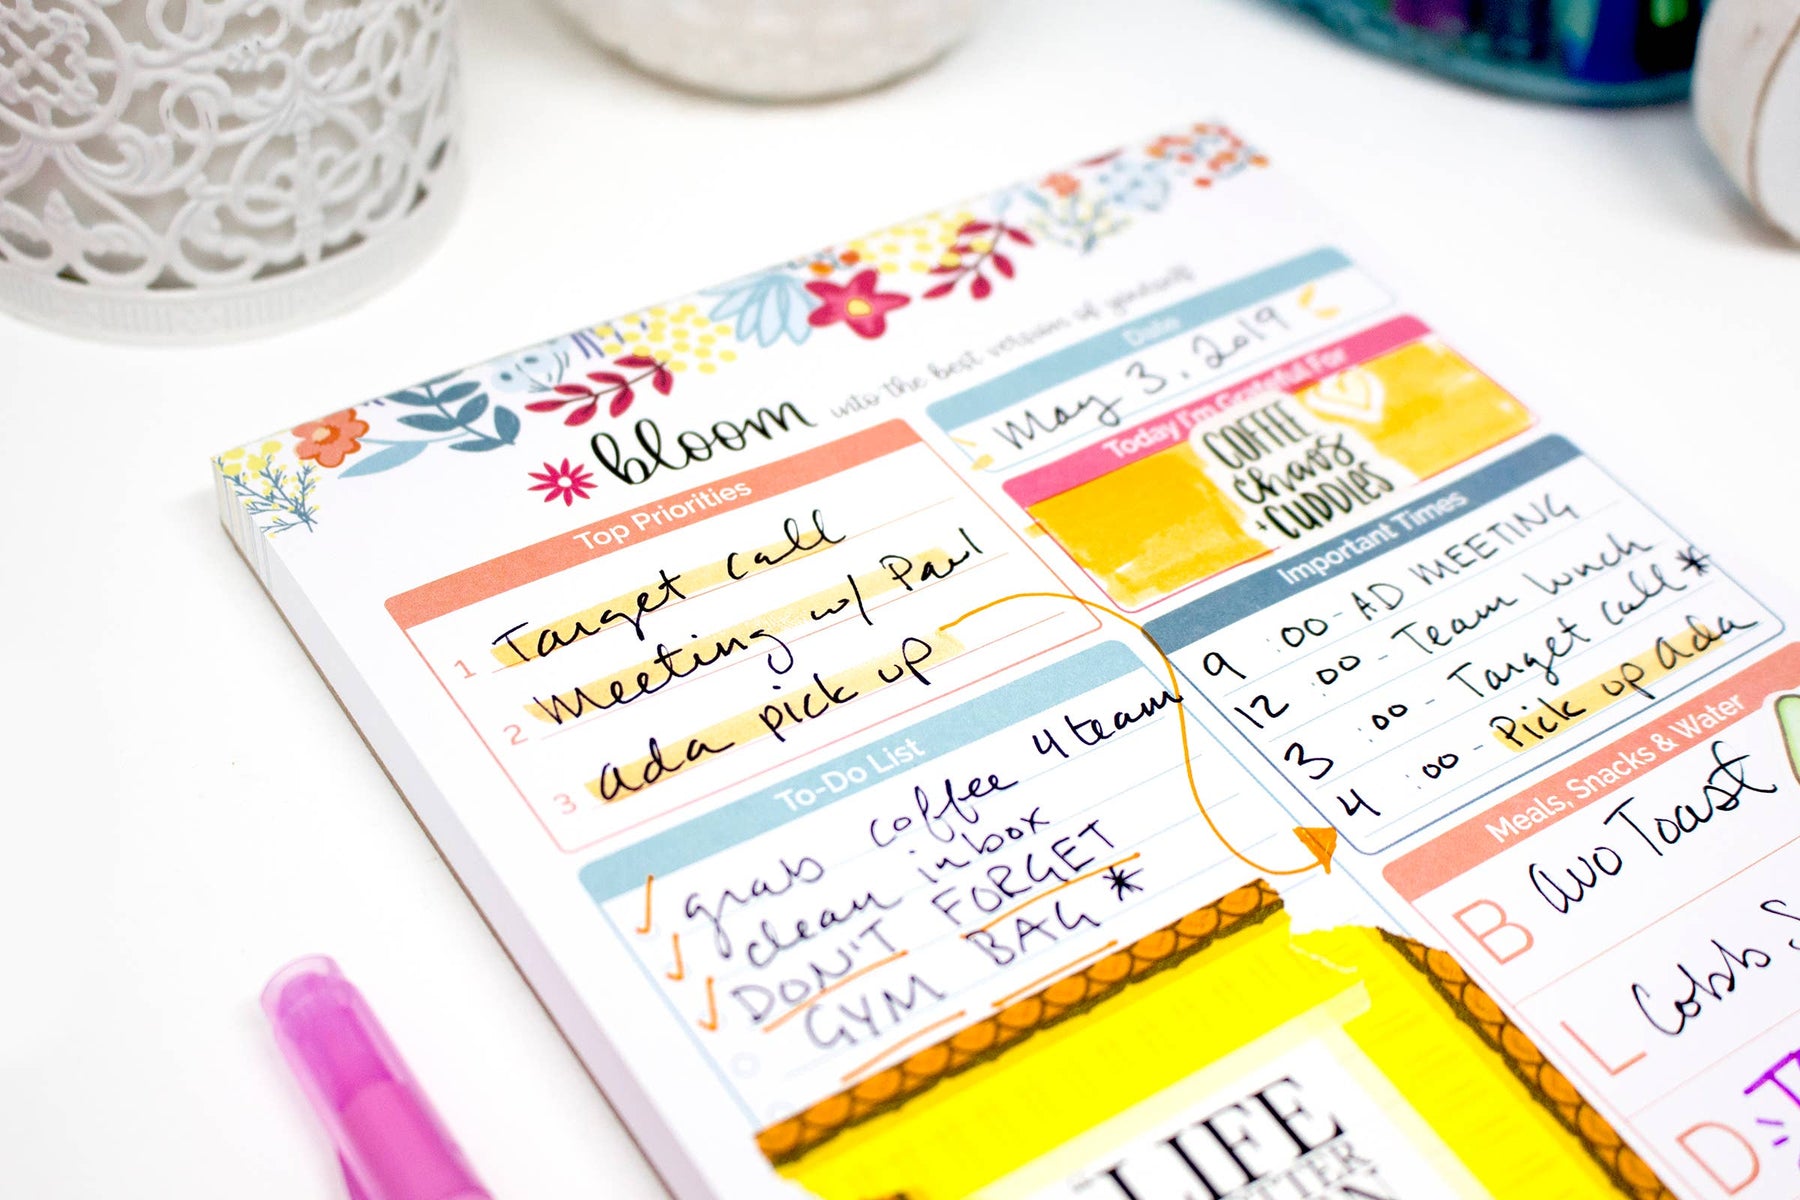 bloom into the best version of yourself
Date
May 3, 2019
Today I'm Grateful For
COFFEE
chaos
+ CUDDLES
Top Priorities
1 Target call
2 Meeting w/ Paul
3 ada pick up
Important Times
9 :00 - AD MEETING
12 :00 - Team lunch
3 :00 - Target call *
4 :00 - Pick up Ada
To-Do List
grab coffee 4 team
clean inbox
DON'T FORGET
GYM BAG *
Meals, Snacks & Water
B avo Toast
L Cobb
D
LIFE